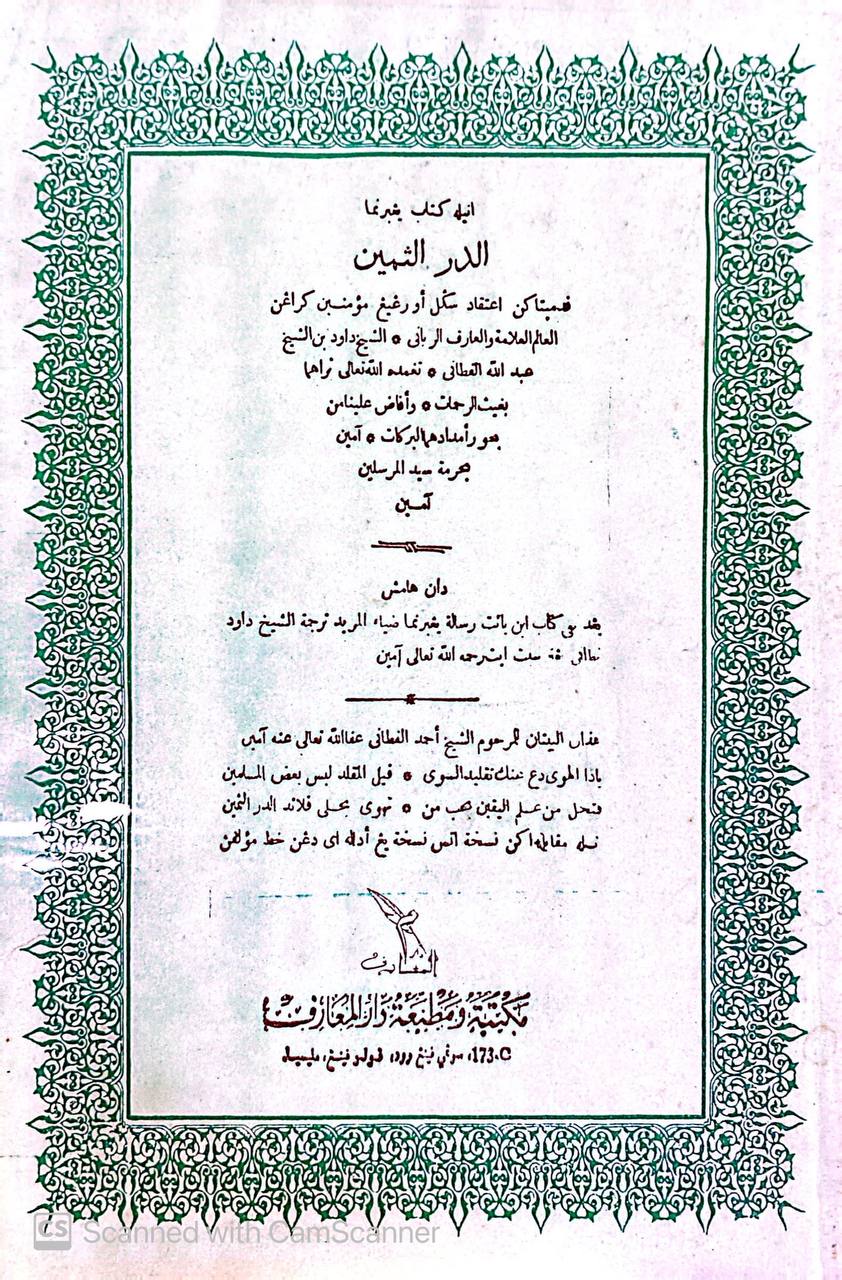 انيله كتاب يڠبرنما
الدر الثمين
فدمپتاكن اعتقاد سكل أورڠيڠ مؤمنين كراڠن
العالم العلامة والعارف الربانى * الشيخ داود بن الشيخ
عبد الله الفطانى * تغمده الله تعالى ثراهما
بغيث الرحمات * وأفاض علينا من
بحور أمدادهما البركات * آمين
بحرمة سيد المرسلين
آمــين
دان هامش
كتاب اين رسالة يڠبرنما ضياء المريد ترجمة الشيخ داود
رحمه الله تعالى آمين
هذان البيتان للمرحوم الشيخ أحمد الفطانى عفا الله تعالى عنه آمين
ياذا الهوى دع عنك تقليد السوى * قيل المقلد ليس بعض المسلمين
فتحل من علم اليقين بحب من * تهوى بحلى قلائد الدر الثمين
مقابله اكن نسخة اتس نسخة يڠ أدله اى دڠن خط مؤلفن
المعارف
مكتبة ومطبعة دار المعارف
173.C، سوڠي فينڠ رود، ڤولو ڤينڠ، مليسيا
CS Scanned with CamScanner